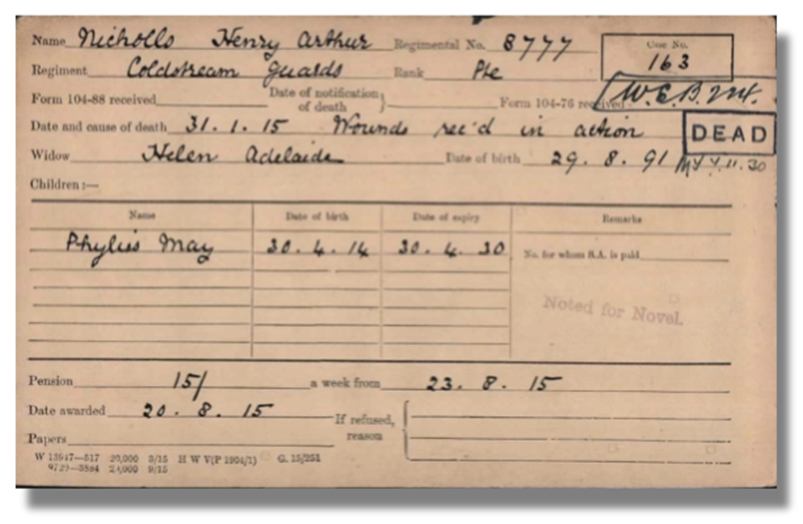 Name Nicholls Henry Arthur Regimental No. 8777 Case No. 163
Regiment Coldstream Guards Rank Pte
Form 104-88 received Date of notification of death } Form 104-76 received
Date and cause of death 31.1.15 Wounds rec'd in action DEAD
Widow Helen Adelaide Date of birth 29.8.91 11.30
Children :—
Name Date of birth Date of expiry Remarks
Phyliss May 30.4.14 30.4.30 No. for whom S.A. is paid
Noted for Novel.
Pension 15/ a week from 23.8.15
Date awarded 20.8.15 If refused, reason {
Papers
W 13647—517 20,000 3/15 H W V(P 1904/1) G. 15/251
9729—3884 24,000 9/15